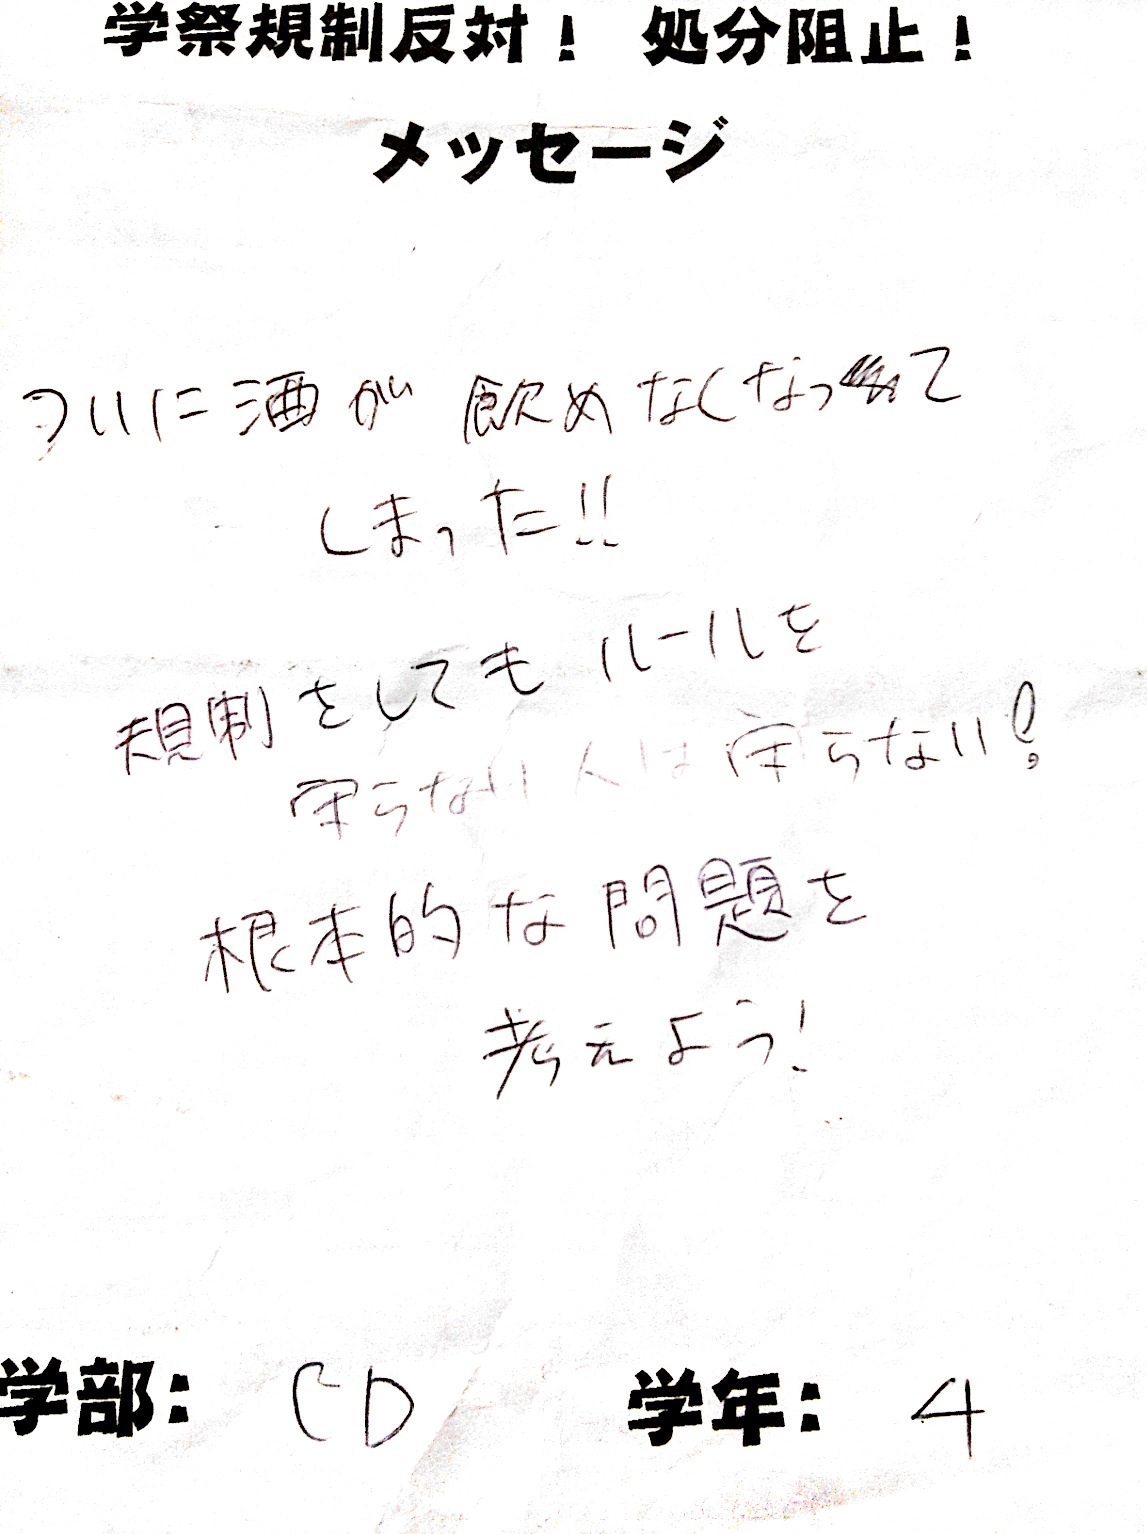 学祭規制反対！ 処分阻止！
メッセージ
ついに酒が飲めなくなって
しまった!!
規制をしてもルールを
守らない人は守らない!
根本的な問題を
考えよう!
学部： CD 学年： 4